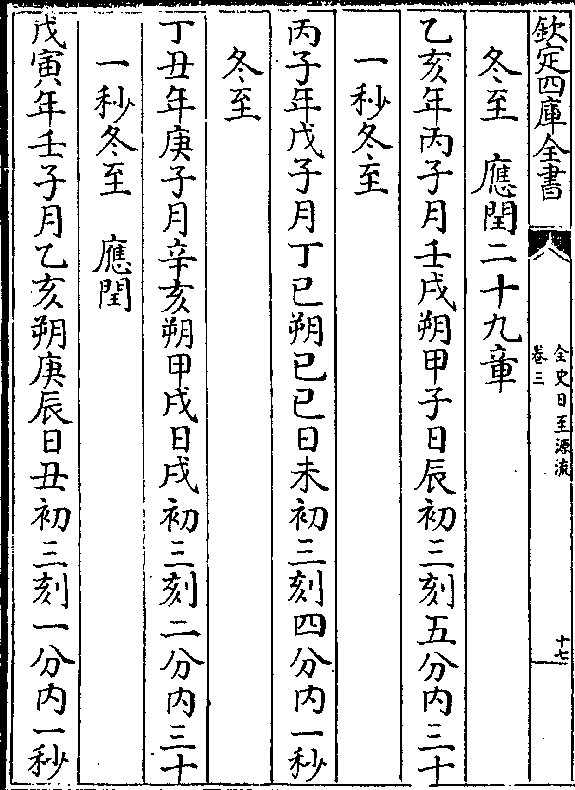 欽定四庫全書
全史日至源流
卷三
十七
冬至　應閏二十九章
乙亥年丙子月壬戌朔甲子日辰初三刻五分内三十
一秒冬至
丙子年戊子月丁巳朔己巳日未初三刻四分内一秒
冬至
丁丑年庚子月辛亥朔甲戌日戌初三刻二分内三十
一秒冬至　應閏
戊寅年壬子月乙亥朔庚辰日丑初三刻一分内一秒